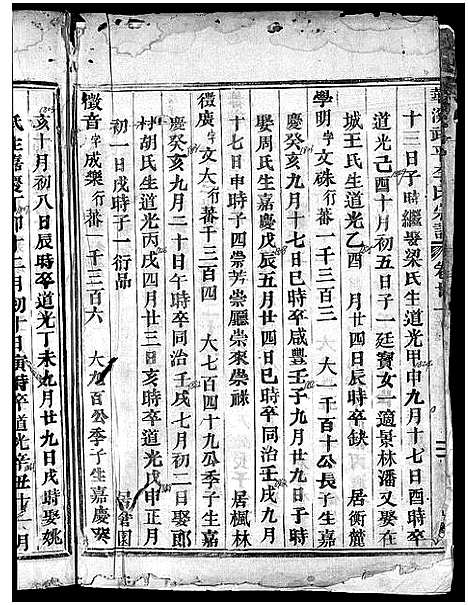 李氏宗譜 卷廿一
十三日子時繼娶梁氏生道光甲申九月十七日酉時卒
道光己酉十月初五日子一廷寶女一適景林潘又娶在
城王氏生道光乙酉四日辰時卒缺 居衡麓
學明字文硃行蕃一千三百三 大一千百十公長子生嘉
慶癸亥九月十七日巳時卒咸豐壬子九月九日子時
娶周氏生嘉慶戊辰五月廿四日巳時卒同治壬戌九月
十七日申時子四崇芳崇廳崇來崇祿 居楓林
徵廣字文大行蕃千三百四 大七百四十九公季子生嘉
慶癸亥九月二十日午時卒同治壬戌七月初二日娶郎
村胡氏生道光丙戌四月廿三日亥時卒道光戊申正月
初一日戌時子一衍品
徵音字成樂行蕃一千三百六 大九百公季子生嘉慶癸
亥十月初八日辰時卒道光丁未九月廿九日戌時娶姚
氏生嘉慶丁卯十二月初十日寅時卒道光辛丑十一月